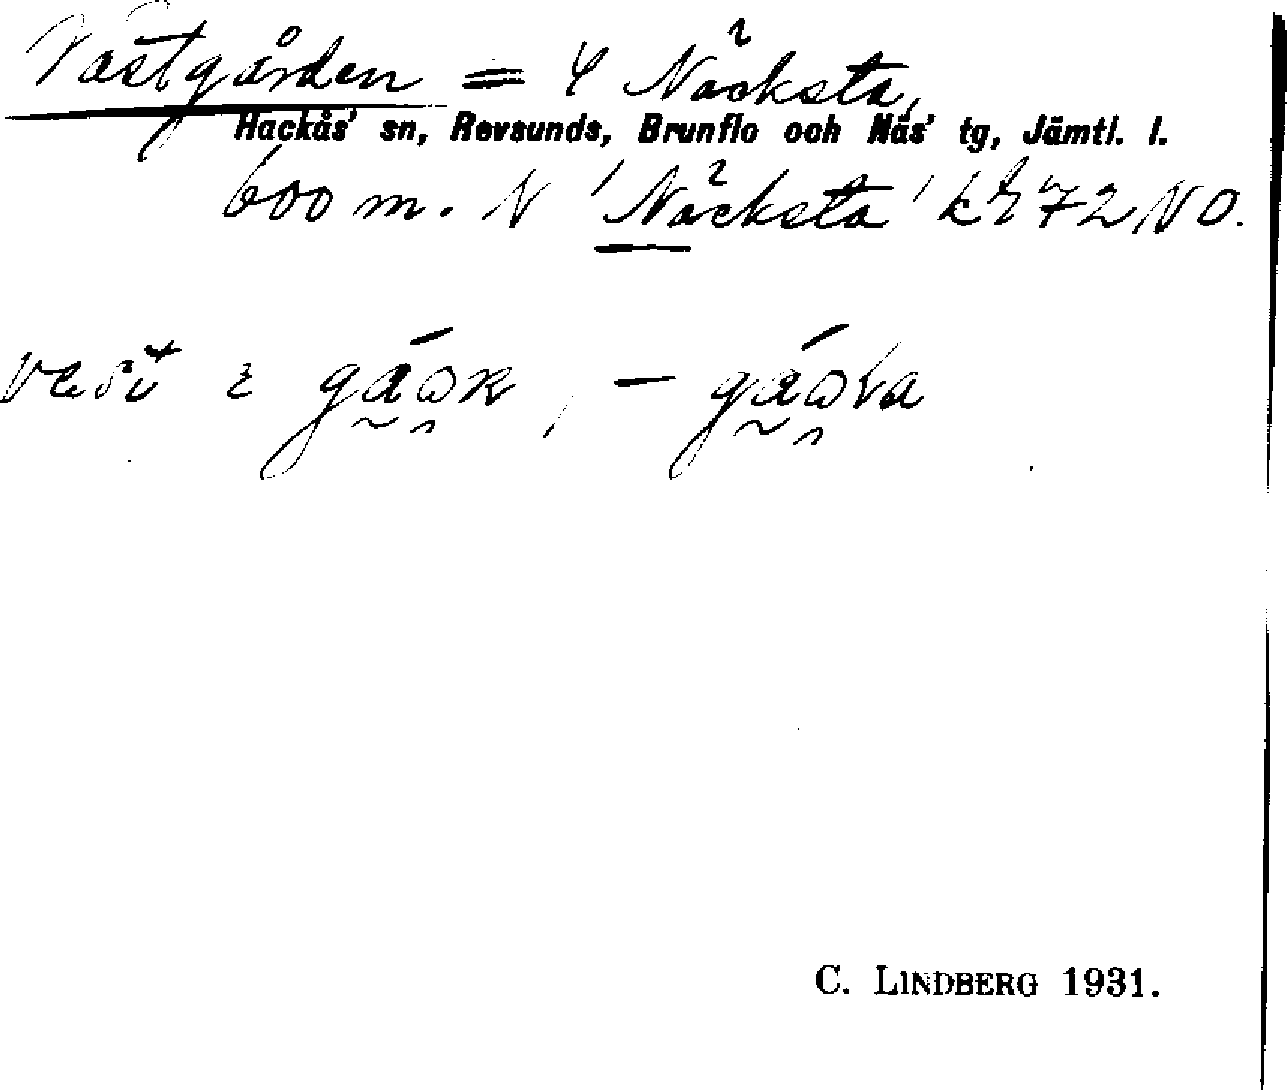 Västgården = 4 Näcksta,
Hackås' sn, Revsunds, Brunflo och Näs' tg, Jämtl. l.
600 m. N 'Näcksta' kbl 72 NO.
C. LINDBERG 1931.